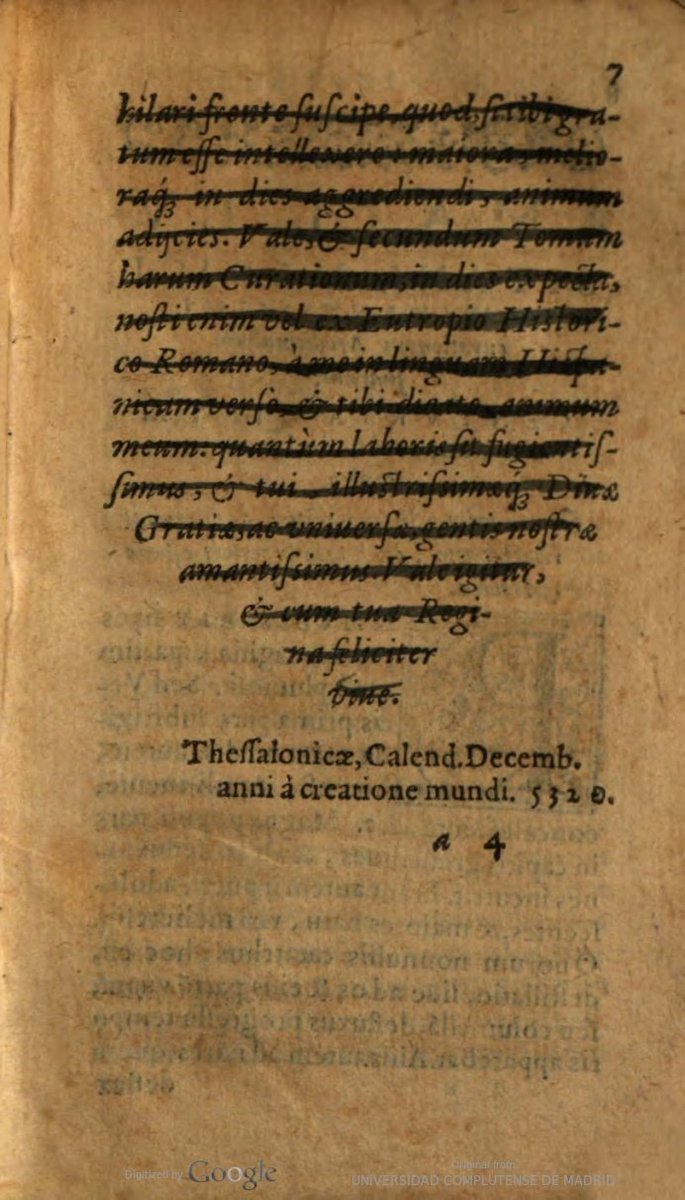 7
hilari fronte suscipe, quod, si tibi gra-
tum esse intellexero: maiora, melio-
raq́; in dies aggrediendi, animum
adijcies. Vale, & secundum Tomum
harum Curationum, in dies expecta,
nosti enim vel ex Eutropio Histori-
co Romano, à me in linguam Hispa-
nicam verso, & tibi dicato, animum
meum: quantùm laboris sit fugientis-
simus, & tui, illustrissimæq́; Diuæ
Gratiæ, ac vniuersæ, gentis nostræ
amantissimus. Vale igitur,
& cum tua Regi-
na feliciter
viue.
Thessalonicæ, Calend. Decemb.
anni à creatione mundi. 5320.
a 4
Digitized by Google
Original from
UNIVERSIDAD COMPLUTENSE DE MADRID